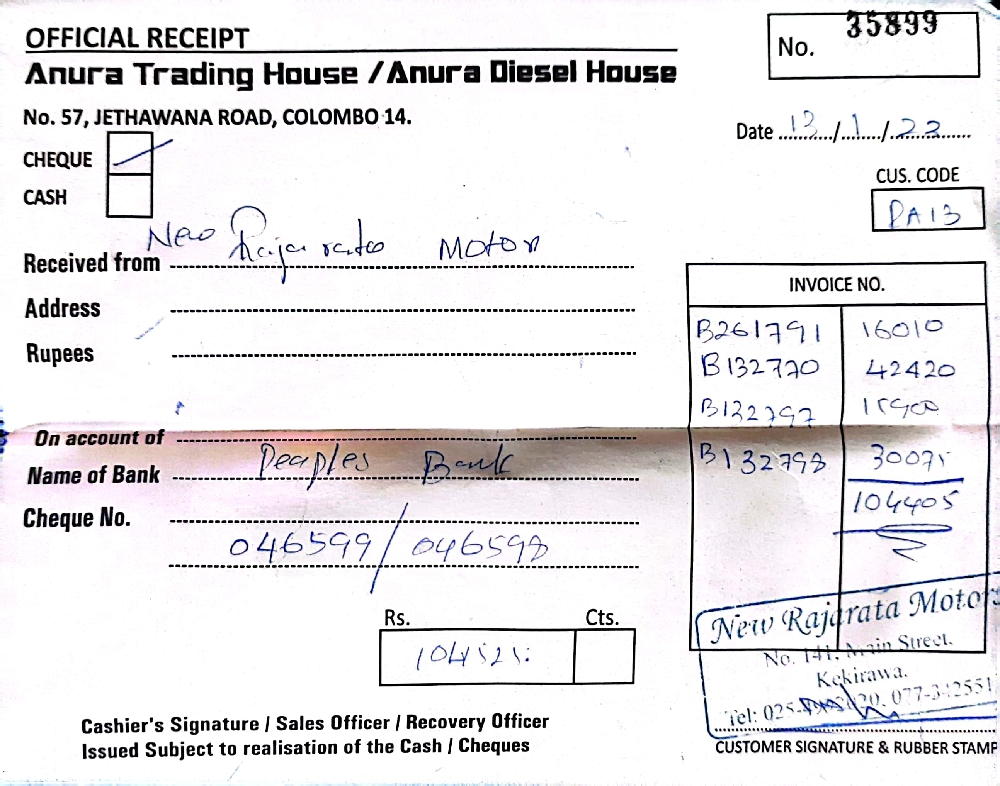 OFFICIAL RECEIPT
Anura Trading House / Anura Diesel House
No. 57, JETHAWANA ROAD, COLOMBO 14.
No. 35899
Date 13/1/22
CHEQUE
CASH
CUS. CODE
RA13
Received from New Rajarata Motor
Address
Rupees
INVOICE NO.
B261791 16010
B132770 42420
B132797 15900
B132798 30075
104405
On account of
Name of Bank Peaples Bank
Cheque No.
046599/046598
Rs. Cts.
104525
New Rajarata Motors
No. 141, Main Street.
Kekirawa.
Tel: 025- 077-342551
Cashier's Signature / Sales Officer / Recovery Officer
Issued Subject to realisation of the Cash / Cheques
CUSTOMER SIGNATURE & RUBBER STAMP